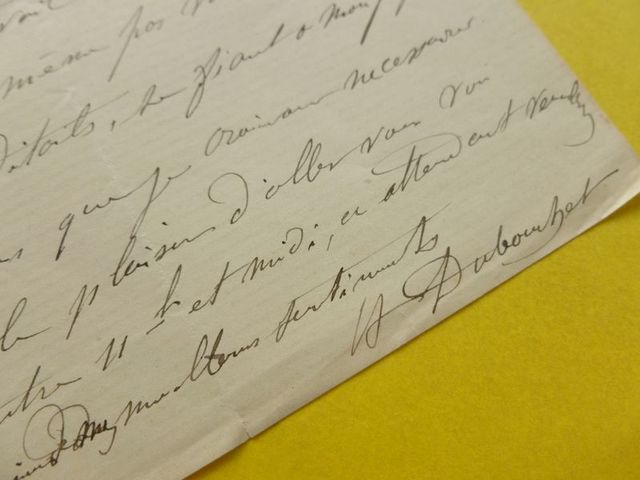 même pas
détails, se fiant à mon
que je croirais nécessaire
le plaisir d'aller vous voir
entre 11 h et midi, en attendant
De mes meilleurs sentiments
H Dubouchet